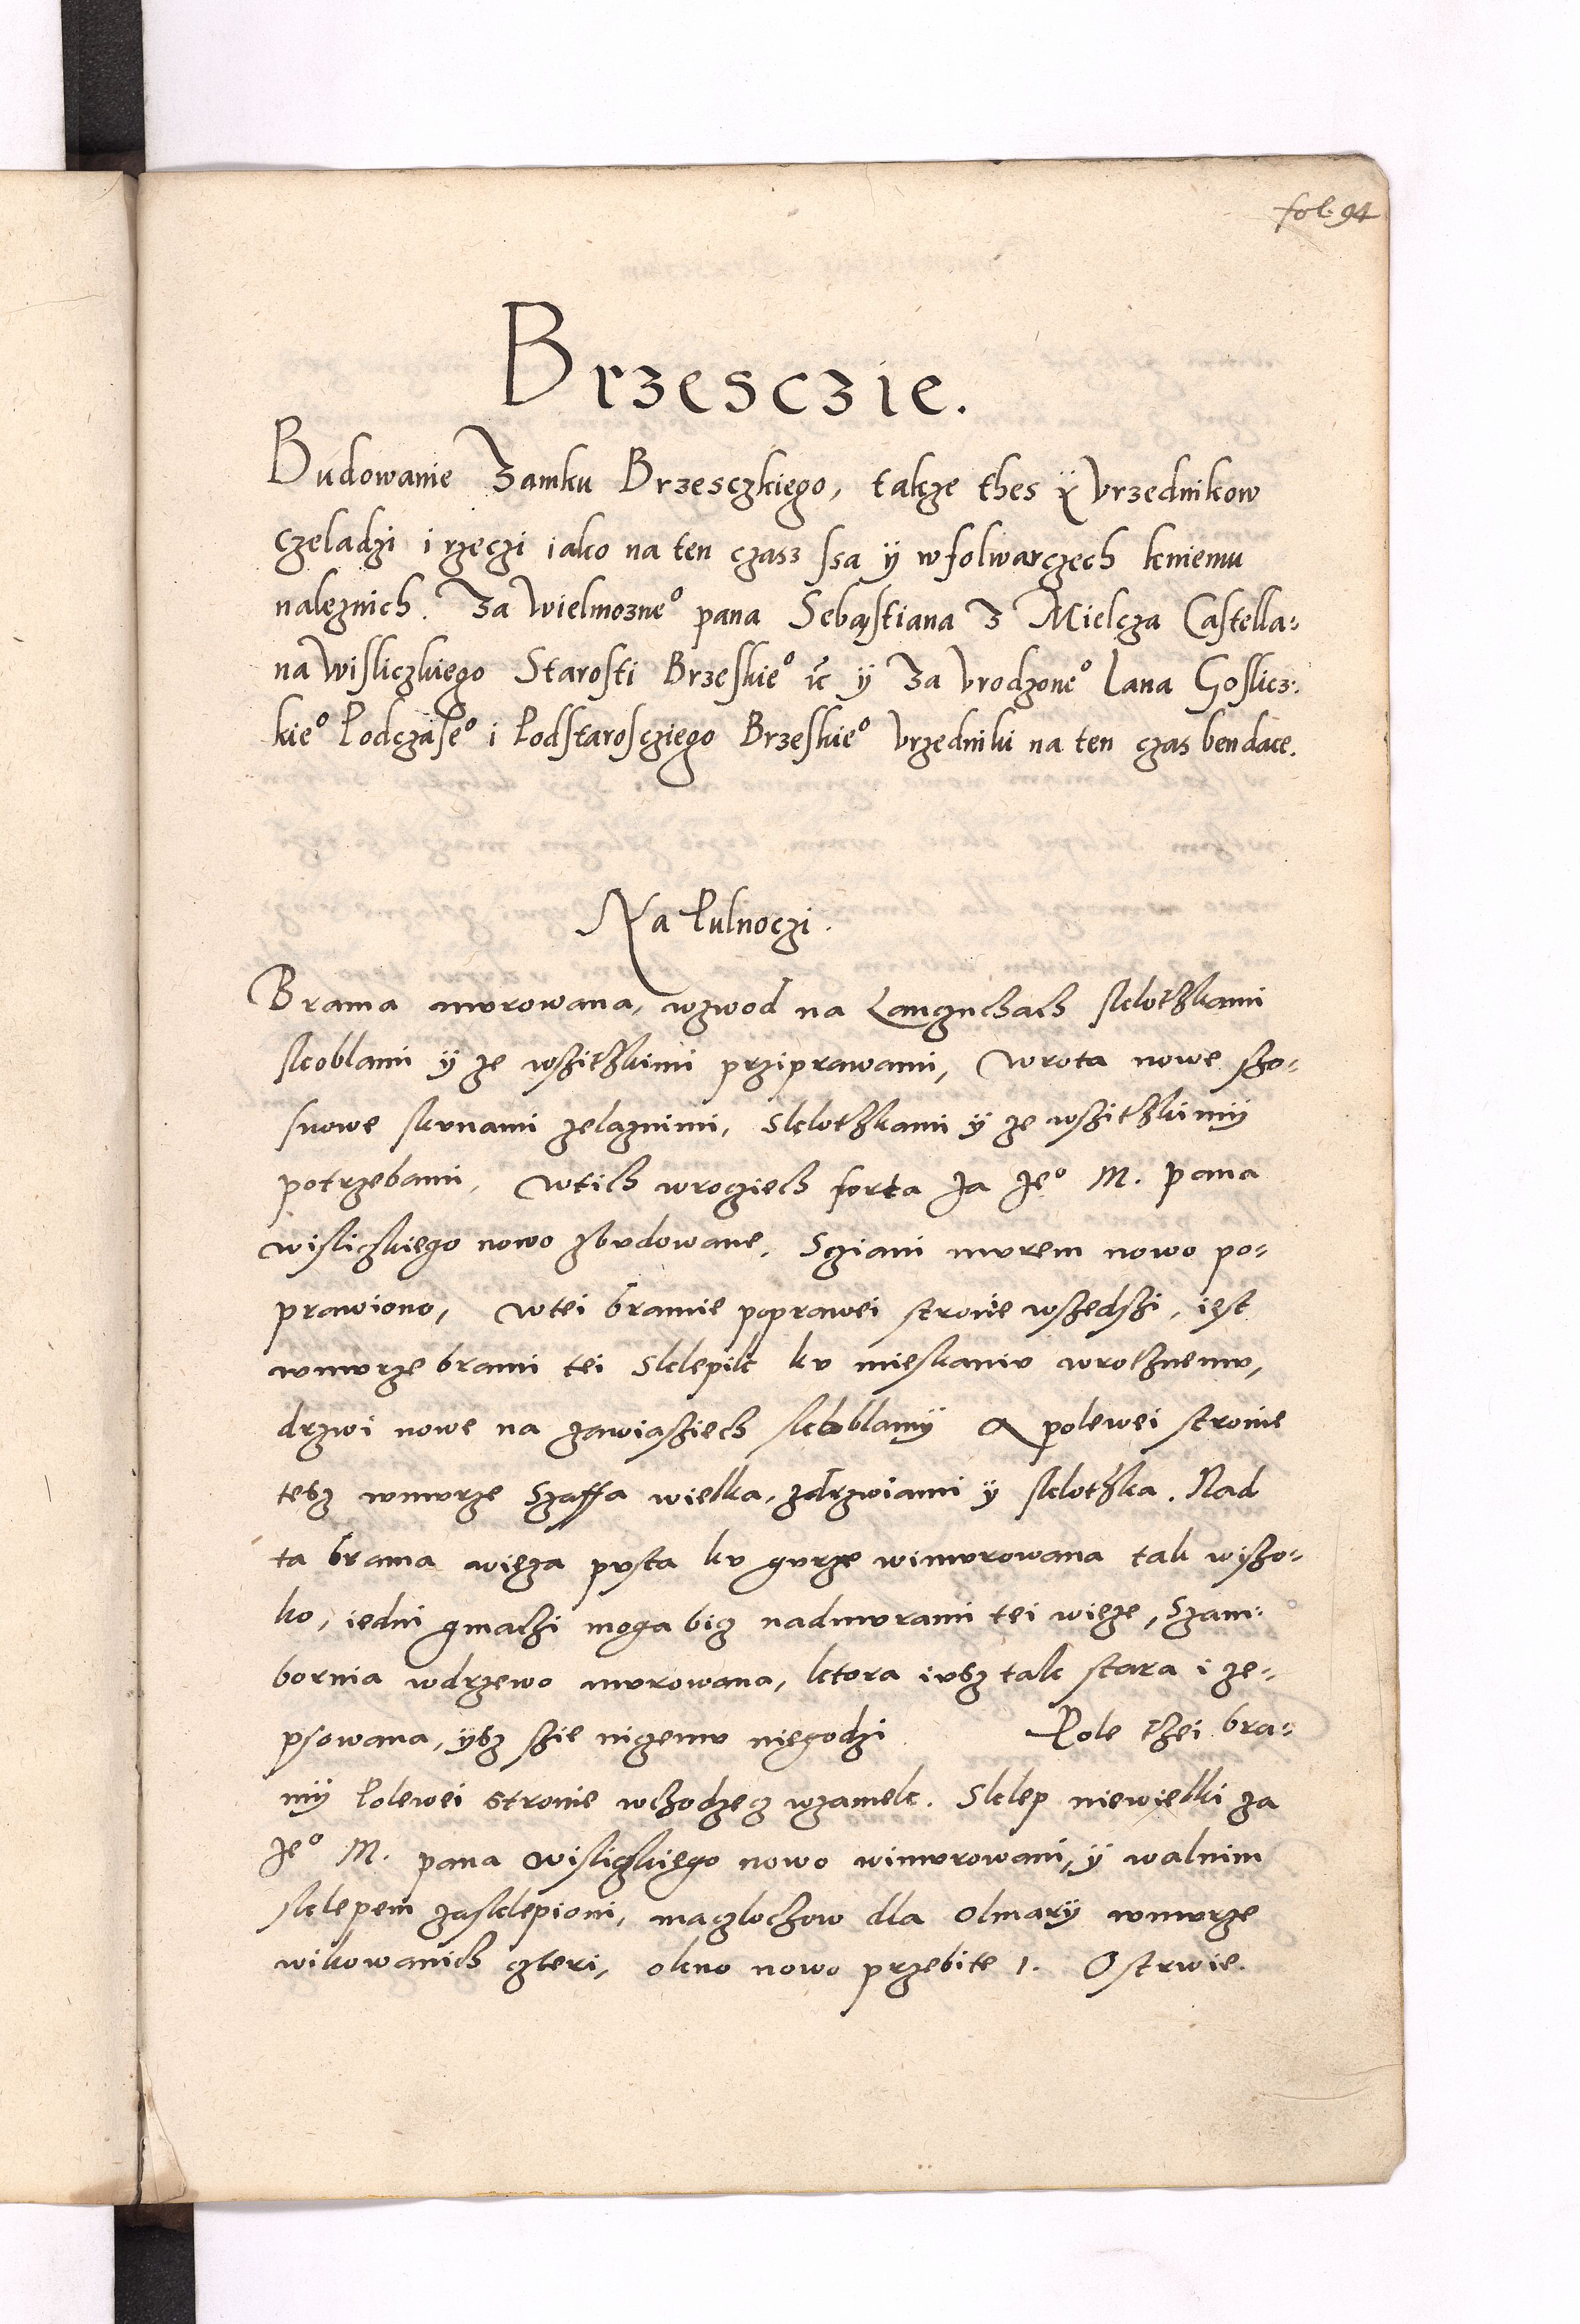 fol. 94
Brzesczie.
Budowanie Zamku Brzesczkiego, takze thes y Vrzednikow
czeladzi i rzeczi iako na ten czasz ssa ÿ w folwarczech kniemu
naleznich. Za Wielmozne° pana Sebastiana Z Mielcza Castella-
na Wisliczkiego Starosti Brzeskie° ẽc ÿ Za Vrodzone° Iana Goslicz-
kie° Podczase° i Podstarosczieg​o Brzeskie° Vrzedniki na ten czas bendace.
Na Pulnoczi.
Brama mvrowana, wzwod na Lanczuchach sklothzkami
skoblami ÿ ze wszithzkimi prziprawami, Wrota nowe szo-
snowe skvnami zelaznimi, sklothzkami ÿ ze wszithzkimÿ
potrzebami, Wtich wrocziech forta Za Je° M. pana
wisliczkiego nowo zbvdowane. Scziani mvrem nowo po-
prawiono, Wtei bramie poprawei stronie wszedszi, iest
wmvrze brami tei Sklepik kv mieskaniv wrothznemv,
drzwi nowe na zawiasziech skoblamÿ A polewei stronie
tesz wmvrze Szaffa wielka, zdrzwiami ÿ sklothzka. Nad
ta brama wieza pvsta kv gvrze wimvrowana tak wiszo-
ko, iedni gmachi moga bicz nadmvrami tei wieze, Szam-
bornia wdrzewo mvrowana, ktora ivsz tak stara i ze-
psowana, ÿsz szie niczemv niegodzi Pole thei bra-
mÿ Polewei stronie wchodzecz wzamek. Sklep niewielki za
Je° M. pana Wisliczkiego nowo wimvrowani, ÿ walnim
sklepem zasklepioni, maczlochow dla Olmarÿ wmvrze
wikowanich czteri, okno nowo przebite 1. Ostrwie.